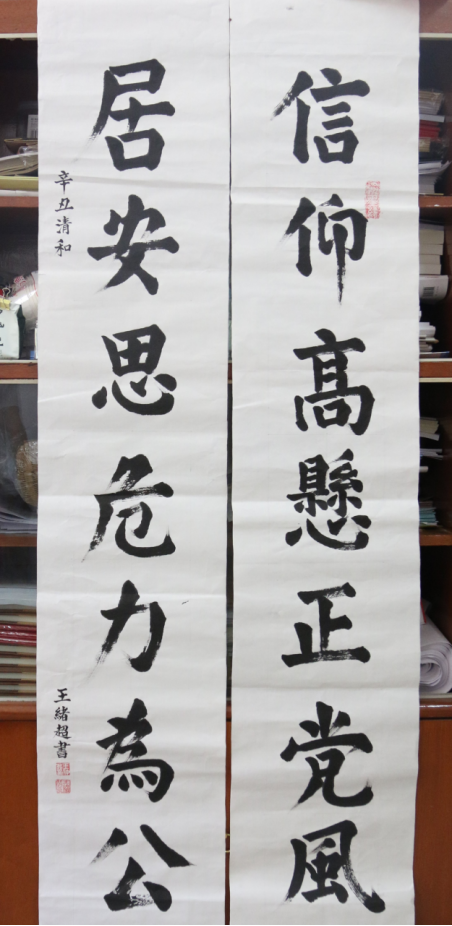 信仰高懸正党風
居安思危力為公
辛丑清和
王緒超書